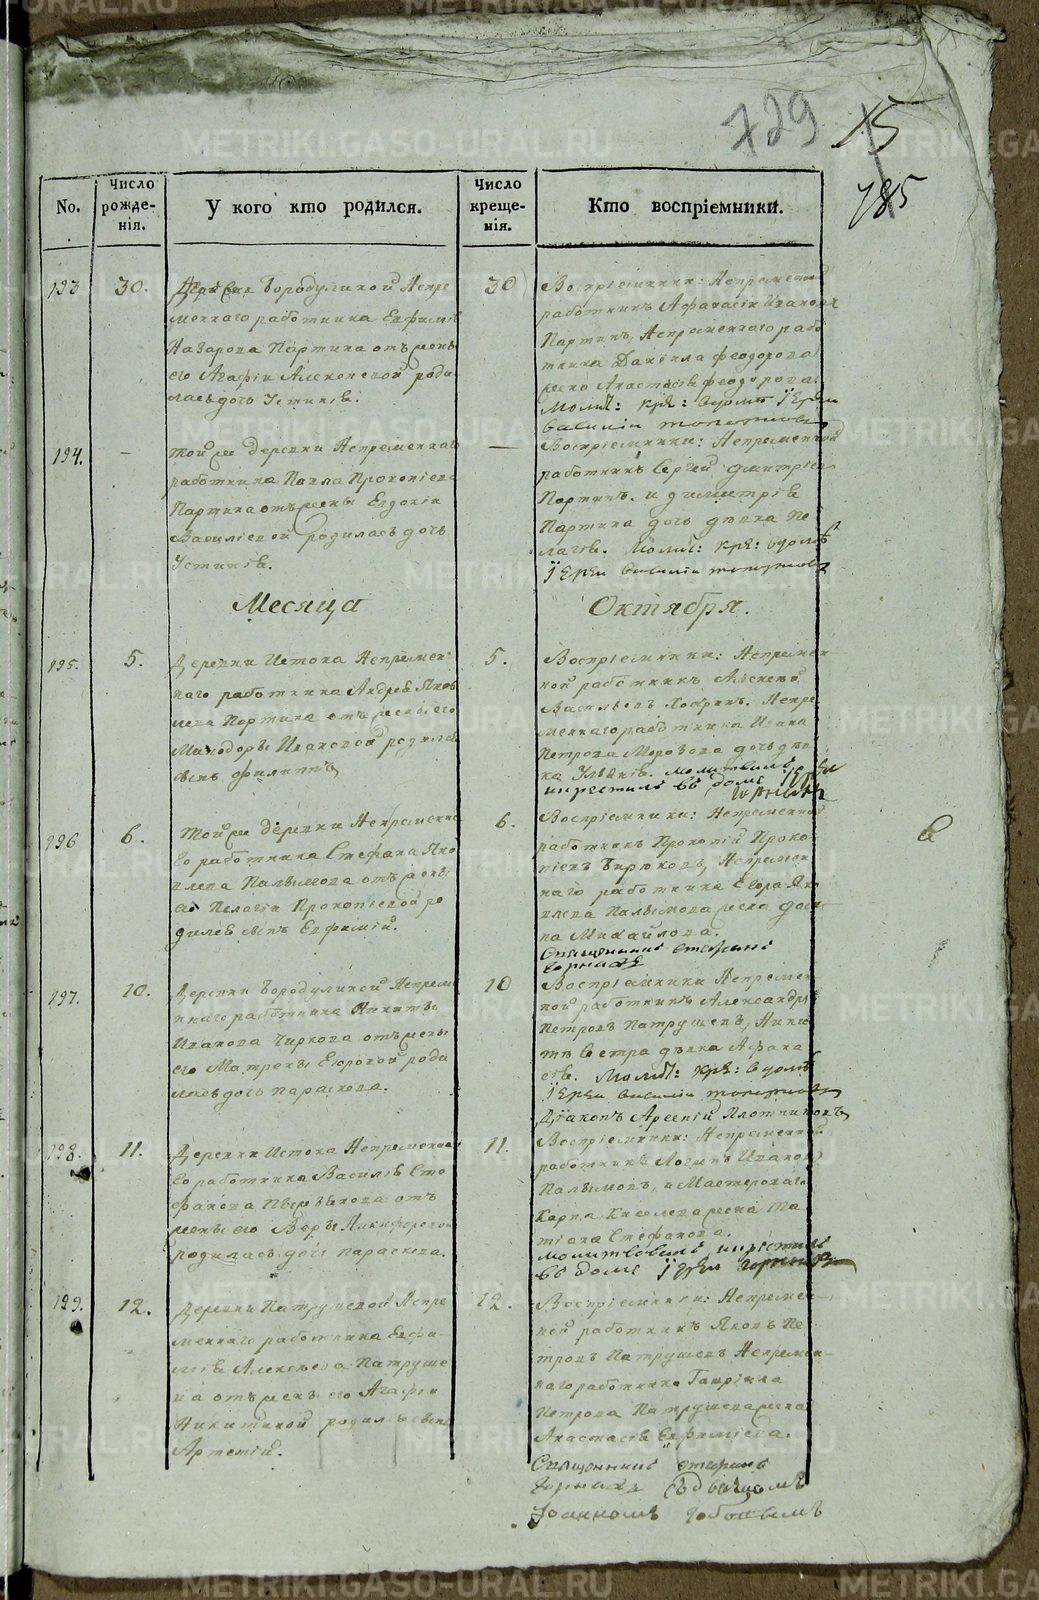 729 15
785
No.
Число рожде-нія.
У кого кто родился.
Число креще-нія.
Кто воспріемники.
193
30.
Бородулиной Непре
меннаго работника Евфимія
Назарова Партина отъ жены
его Агафіи Алексеевой роди
лась дочь Устинія.
30
Воспріемники: Непременной
работникъ Афанасій Ивановъ
Партинъ, Непременнаго рабо
тника Даніила Феодорова
жена Анастасія Феодорова.
Молит: кре: въ доме Іерей
василій
194.
—
той же деревни Непременнаго
работника Павла Прокопіева
Партина отъ жены Евдокіи
Василіевой родилась дочь
Устинія.
—
Воспріемники: Непременной
работникъ Сергей Дмитріевъ
Партинъ. и Димитрія
Партина дочь девка Пе
лагія. Молит: кре: въ доме
Іерей василій
Месяца
Октября.
195.
5.
Деревни Истока Непремен-
наго работника Андрея Яков
лева Партина отъ жены его
Минодоры Ивановой родился
сынъ Филиппъ
5.
Воспріемники: Непремен-
ной работникъ Алексей
Васильевъ Непре
меннаго работника Ивана
Петрова Морозова дочь дев
ка Уліянія. молитвилъ
и крестилъ въ доме Іерей
196
6.
Той же деревни Непременна
го работника Стефана Яко
влева Палымова отъ жены
его Пелагіи Прокопіевой ро
дился сынъ Евфимій.
6.
Воспріемники: Непременной
работникъ Прокопій Проко
піевъ Бирюковъ, Непремен
наго работника Егора Яко
влева Палымова жена
Михайлова.
Священникъ Стефанъ
197.
10.
Деревни Бородулиной Непреме
ннаго работника Никиты
Иванова Чиркова отъ жены
его Матроны Егоровой роди
лась дочь Параскева.
10
Воспріемники Непремен
ной работникъ Александръ
Петровъ Патрушевъ, Ники
ты сестра девка Афана
сія. Молит: кре: въ доме
Іерей василій
Діаконъ Арсеній Плотниковъ
198.
11.
Деревни Истока Непременна
го работника Василія Сте
фанова отъ
жены его Веры Никифоровой
родилась дочь Параскева.
11.
Воспріемники: Непременной
работникъ Иванов
Палымовъ, и Мастероваго
Карпа Киселева жена Та
тіана Стефанова.
молитвовалъ и крестилъ
въ доме Іерей
199.
12.
Деревни Патрушевой Непре
меннаго работника Евфи-
мія Алексеева Патруше
ва отъ жены его Агафіи
Никитиной родился сынъ
Артемій.
12.
Воспріемники: Непремен-
ной работникъ Яковъ Пе
тровъ Патрушевъ Непремен-
наго работника Гавріила
Петрова Патрушева жена
Анастасія Евфиміева.
Священникъ Стефанъ
Іоанномъ